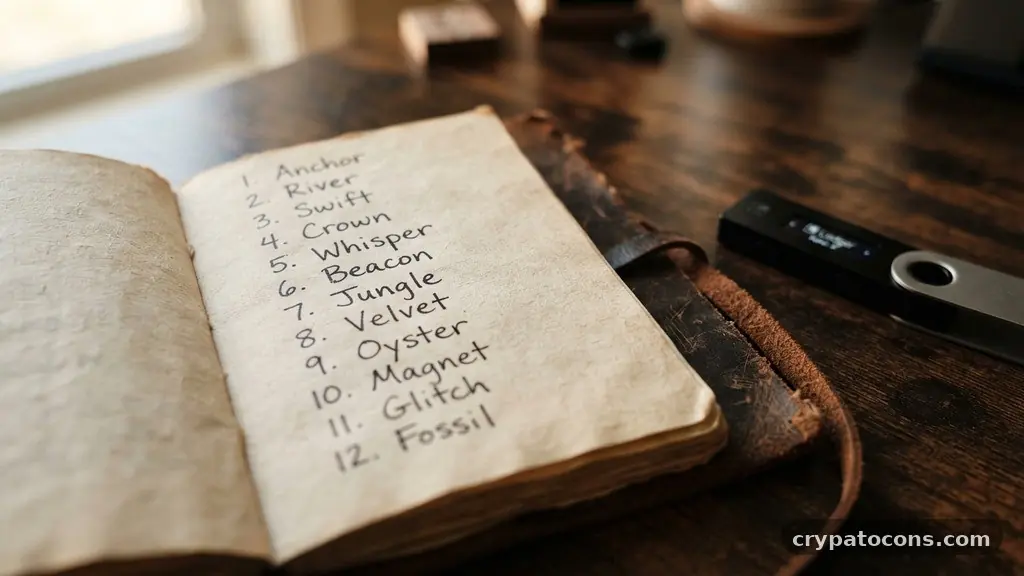 1. Anchor
2. River
3. Swift
4. Crown
5. Whisper
6. Beacon
7. Jungle
8. Velvet
9. Oyster
10. Magnet
11. Glitch
12. Fossil
crypatocons.com